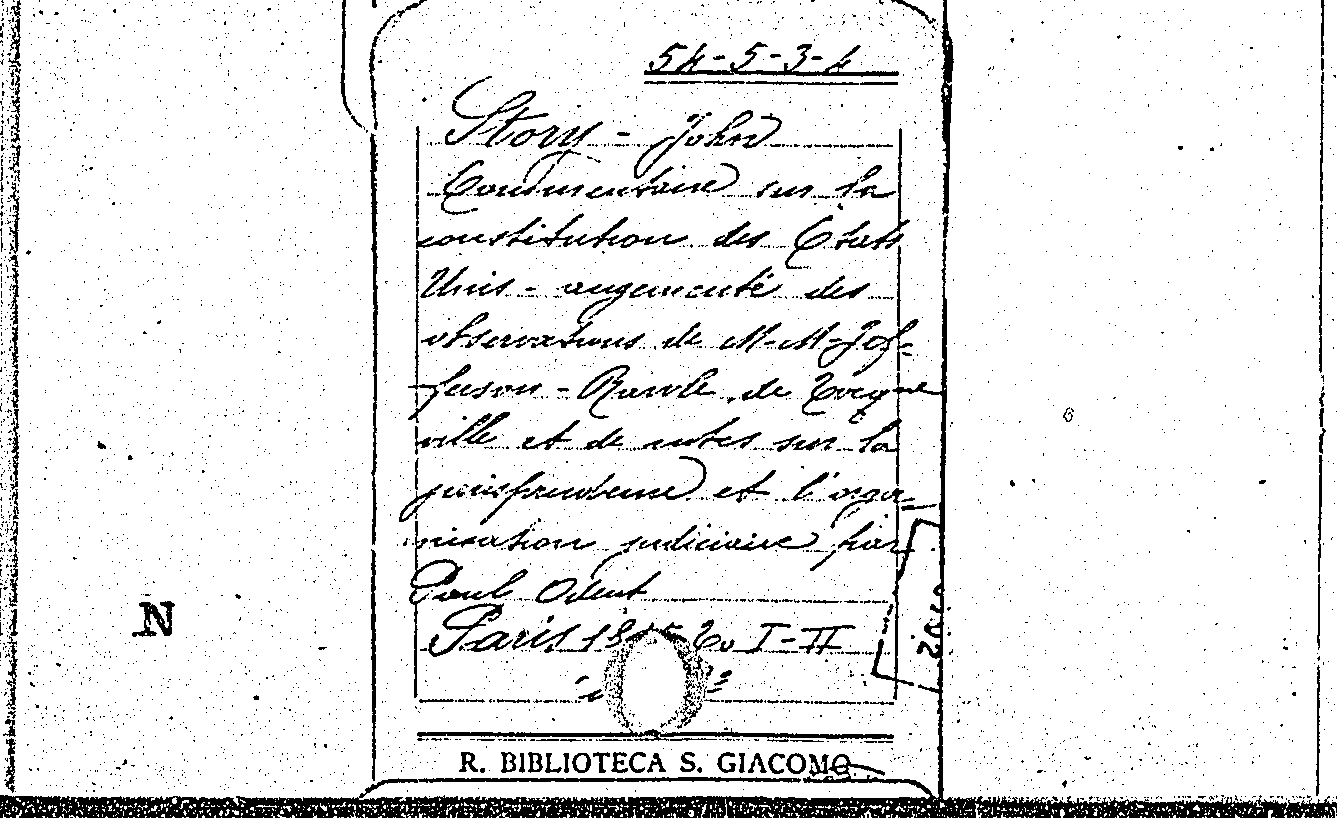 54-5-3-4
Story - John
Commentaire sur la
constitution des Etats
Unis - augementé des
observations de M-M-Jef=
ferson - Rawle, de Tocque
ville et de notes sur la
jurisprudence et l'orga=
nisation judiciaire par
Paul Odent
Paris 18 To I-II
in
R. BIBLIOTECA S. GIACOMO
N
6